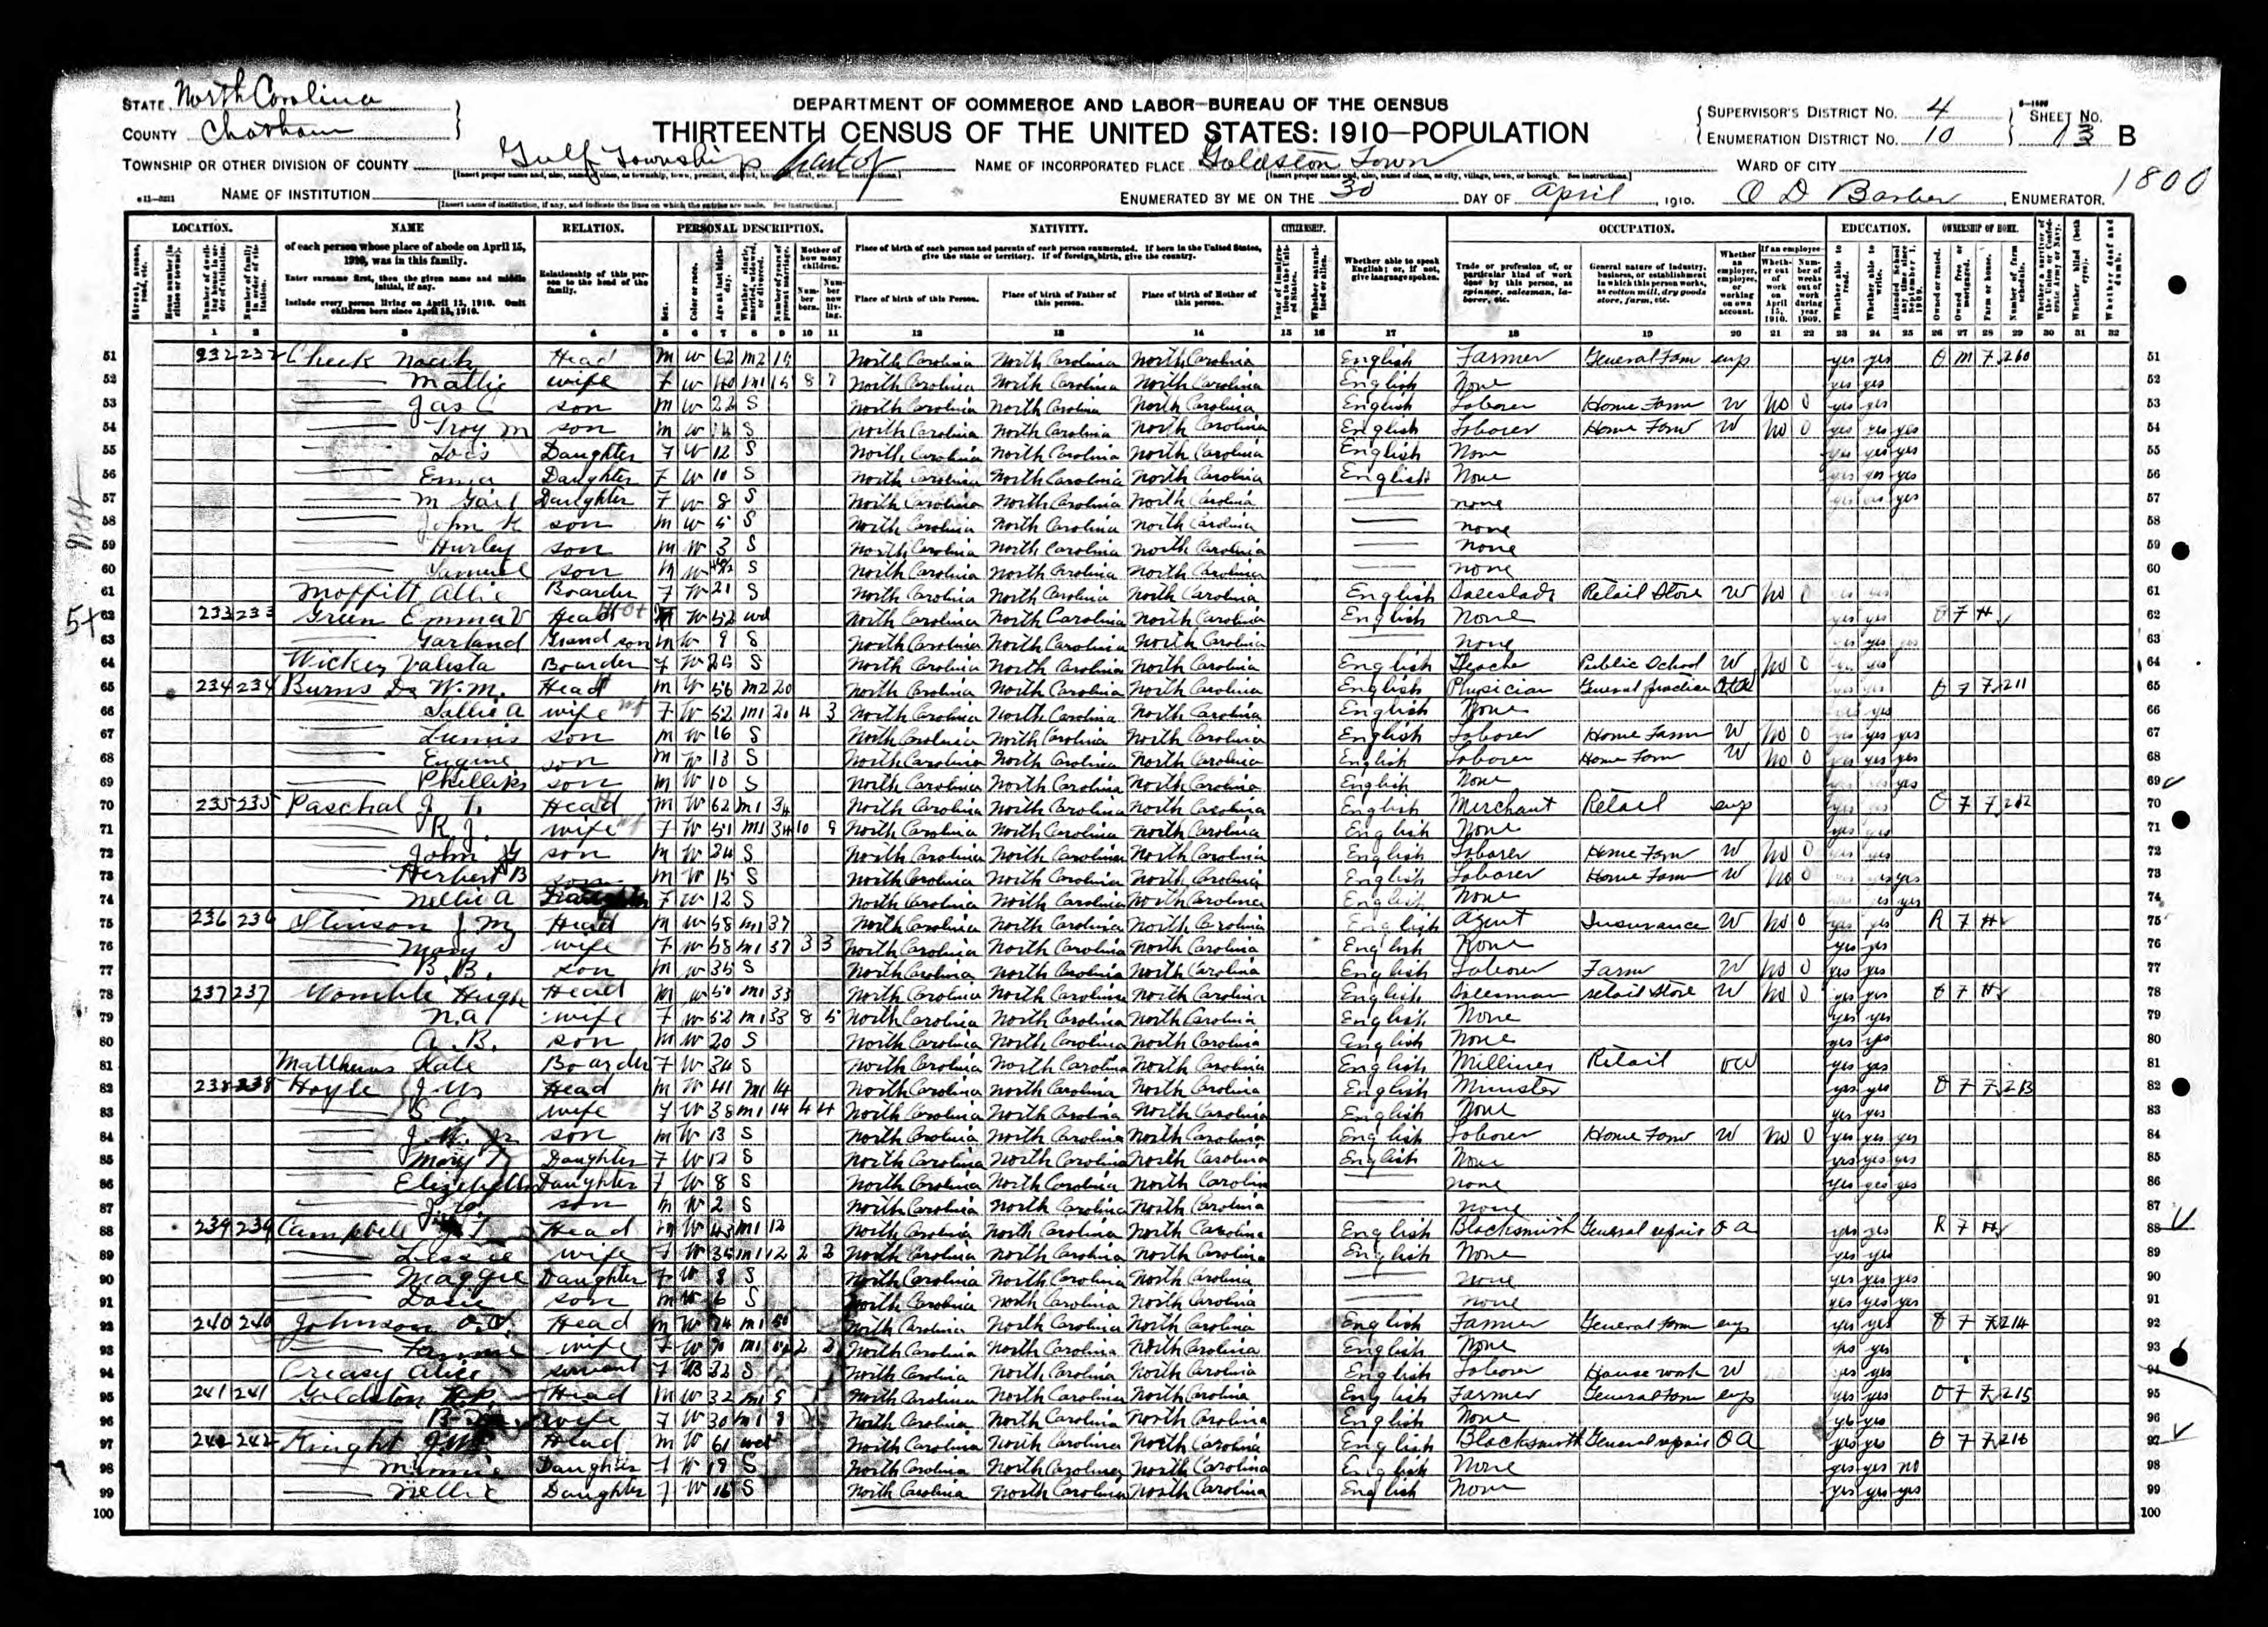 STATE North Carolina
COUNTY Chatham
DEPARTMENT OF COMMERCE AND LABOR—BUREAU OF THE CENSUS
THIRTEENTH CENSUS OF THE UNITED STATES: 1910—POPULATION
SUPERVISOR'S DISTRICT No. 4
ENUMERATION DISTRICT No. 10
SHEET No. 13 B
TOWNSHIP OR OTHER DIVISION OF COUNTY Gulf Township part of
NAME OF INCORPORATED PLACE Goldston Town
WARD OF CITY
NAME OF INSTITUTION
ENUMERATED BY ME ON THE 30 DAY OF April, 1910. O D Barber, ENUMERATOR.
1800
LOCATION. NAME RELATION. PERSONAL DESCRIPTION. NATIVITY. CITIZENSHIP. OCCUPATION. EDUCATION. OWNERSHIP OF HOME.
of each person whose place of abode on April 15, 1910, was in this family.
Enter surname first, then the given name and middle initial, if any.
Include every person living on April 15, 1910. Omit children born since April 15, 1910.
Relationship of this person to the head of the family.
Place of birth of each person and parents of each person enumerated. If born in the United States, give the state or territory. If of foreign birth, give the country.
Place of birth of this Person. Place of birth of Father of this person. Place of birth of Mother of this person.
Whether able to speak English; or, if not, give language spoken.
1 2 3 4 5 6 7 8 9 10 11 12 13 14 15 16 17 18 19 20 21 22 23 24 25 26 27 28 29 30 31 32
51 232 232 Cheek Head m w 62 m2 15 North Carolina North Carolina North Carolina English Farmer General Farm emp yes yes O M F 51
52 Mattie wife F w 40 m1 15 8 7 North Carolina North Carolina North Carolina English None yes yes 52
53 Jas C son m w 22 S North Carolina North Carolina North Carolina English Laborer Home Farm W no 0 yes yes 53
54 Troy M son m w 14 S North Carolina North Carolina North Carolina English Laborer Home Farm W no 0 yes yes yes 54
55 Lois Daughter F W 12 S North Carolina North Carolina North Carolina English None yes yes yes 55
56 Daughter F W 10 S North Carolina North Carolina North Carolina English None yes yes yes 56
57 M Gail Daughter F w 8 S North Carolina North Carolina North Carolina none yes yes yes 57
58 John K son m w 5 S North Carolina North Carolina North Carolina none 58
59 Hurley son m W 3 S North Carolina North Carolina North Carolina none 59
60 son m w S North Carolina North Carolina North Carolina none 60
61 Moffitt Allie Boarder F W 21 S North Carolina North Carolina North Carolina English Saleslady Retail Store W no 0 yes yes 61
62 233 233 Green Emma V Head W 52 wd North Carolina North Carolina North Carolina English None yes yes O F H 62
63 Garland Grand son m W 9 S North Carolina North Carolina North Carolina none yes yes yes 63
64 Valista Boarder F W S North Carolina North Carolina North Carolina English Teacher Public School W no 0 yes 64
65 234 234 Burns Dr W.M. Head m W 56 m2 20 North Carolina North Carolina North Carolina English Physician General practice yes O F F 211 65
66 Sallie A wife F W 52 m1 20 4 3 North Carolina North Carolina North Carolina English None yes yes 66
67 son m W 16 S North Carolina North Carolina North Carolina English Laborer Home Farm W no 0 yes yes yes 67
68 Eugine son m W 13 S North Carolina North Carolina North Carolina English Laborer Home Farm W no 0 yes yes yes 68
69 Phillips son m W 10 S North Carolina North Carolina North Carolina English None yes yes yes 69
70 235 235 Paschal Head m W 62 m1 34 North Carolina North Carolina North Carolina English Merchant Retail emp yes yes O F F 212 70
71 R.J. wife F W 51 m1 34 10 9 North Carolina North Carolina North Carolina English None yes yes 71
72 John G son m W 24 S North Carolina North Carolina North Carolina English Laborer Home Farm W no 0 yes yes 72
73 Herbert B son m W 15 S North Carolina North Carolina North Carolina English Laborer Home Farm W no 0 yes yes 73
74 Nellie A Daughter F W 12 S North Carolina North Carolina North Carolina English None yes yes 74
75 236 236 Stinson J M Head m w 58 m1 37 North Carolina North Carolina North Carolina English Agent Insurance W no 0 yes yes R F H 75
76 Mary wife F w 58 m1 37 3 3 North Carolina North Carolina North Carolina English None yes yes 76
77 B.B. son m w 35 S North Carolina North Carolina North Carolina English Laborer Farm W no 0 yes yes 77
78 237 237 Womble Hugh Head m w 50 m1 33 North Carolina North Carolina North Carolina English Salesman retail Store W no 0 yes yes O F H 78
79 N.A wife F w 52 m1 33 8 5 North Carolina North Carolina North Carolina English None yes yes 79
80 A.B. son m W 20 S North Carolina North Carolina North Carolina English None yes yes 80
81 Matthews Kate Boarder F W 34 S North Carolina North Carolina North Carolina English Milliner Retail OW yes yes 81
82 238 238 Hoyle J W Head m W 41 m1 14 North Carolina North Carolina North Carolina English Minister yes yes O F F 213 82
83 S C. wife F W 38 m1 14 4 4 North Carolina North Carolina North Carolina English None yes yes 83
84 J.W. Jr son m W 13 S North Carolina North Carolina North Carolina English Laborer Home Farm W no 0 yes yes yes 84
85 Mary Daughter F W 12 S North Carolina North Carolina North Carolina English None yes yes yes 85
86 Elizabeth Daughter F W 8 S North Carolina North Carolina North Carolina none yes yes yes 86
87 son m W 2 S North Carolina North Carolina North Carolina none 87
88 239 239 Campbell Head m W 43 m1 12 North Carolina North Carolina North Carolina English Blacksmith General repair O A yes yes R F H 88
89 wife F W 35 m1 12 2 2 North Carolina North Carolina North Carolina English None yes yes 89
90 Maggie Daughter F W 8 S North Carolina North Carolina North Carolina none yes yes yes 90
91 son m W 6 S North Carolina North Carolina North Carolina none yes yes yes 91
92 240 240 Johnson Head m W 74 m1 50 North Carolina North Carolina North Carolina English Farmer General Farm emp yes yes O F F 214 92
93 wife F W 70 m1 North Carolina North Carolina North Carolina English None yes yes 93
94 Creasy Alice servant F B 32 S North Carolina North Carolina North Carolina English Laborer House work W yes yes 94
95 241 241 Goldston Head m W 32 m1 9 North Carolina North Carolina North Carolina English Farmer General Farm emp yes yes O F F 215 95
96 wife F W 30 m1 9 North Carolina North Carolina North Carolina English None yes yes 96
97 242 242 Knight J.W. Head m W 61 wd North Carolina North Carolina North Carolina English Blacksmith General repair O A yes yes O F F 216 97
98 Minnie Daughter F W 19 S North Carolina North Carolina North Carolina English None yes yes no 98
99 Nellie Daughter F W 16 S North Carolina North Carolina North Carolina English None yes yes yes 99
100 100